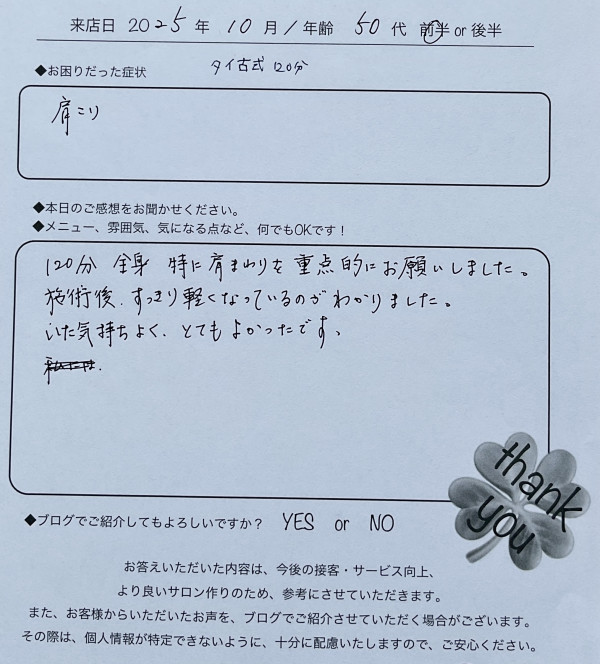 来店日 2025 年 10 月/年齢 50 代 前半 or 後半
タイ古式 120分
◆お困りだった症状
肩こり
◆本日のご感想をお聞かせください。
◆メニュー、雰囲気、気になる点など、何でもOKです！
120分 全身 特に肩まわりを重点的にお願いしました。
施術後、すっきり軽くなっているのがわかりました。
いた気持ちよく、とてもよかったです、
thank
you
◆ブログでご紹介してもよろしいですか？ YES or NO
お答えいただいた内容は、今後の接客・サービス向上、
より良いサロン作りのため、参考にさせていただきます。
また、お客様からいただいたお声を、ブログでご紹介させていただく場合がございます。
その際は、個人情報が特定できないように、十分に配慮いたしますので、ご安心ください。